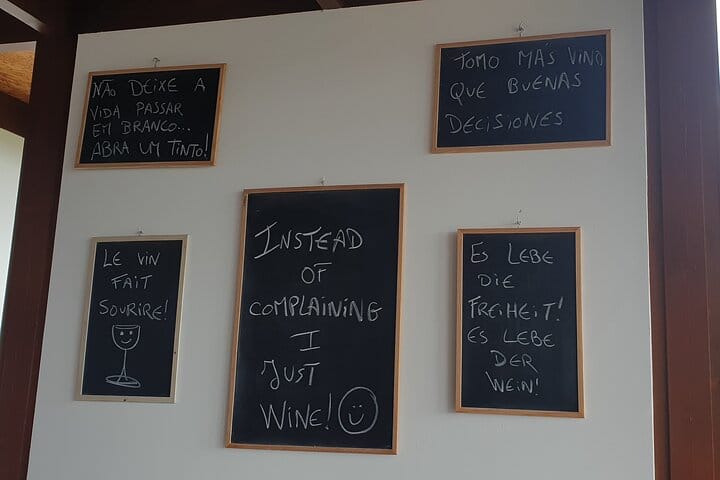 NÃO DEIXE A
VIDA PASSAR
EM BRANCO...
ABRA UM TINTO!
TOMO MÁS VINO
QUE BUENAS
DECISIONES
LE VIN
FAIT
SOURIRE!
INSTEAD
OF
COMPLAINING
I
JUST
WINE!
ES LEBE
DIE
FREIHEIT!
ES LEBE
DER
WEIN!